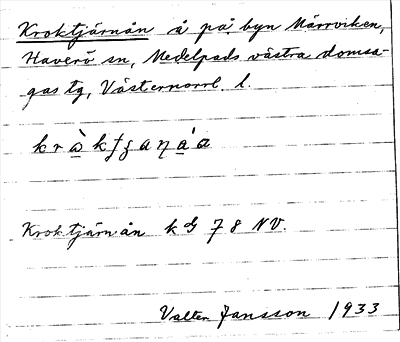 Kroktjärnån å på byn Märrviken,
Haverö sn, Medelpads västra domsa-
gas tg, Västernorrl. l.
Kroktjärnån kbl 78 NV.
Valter Jansson 1933